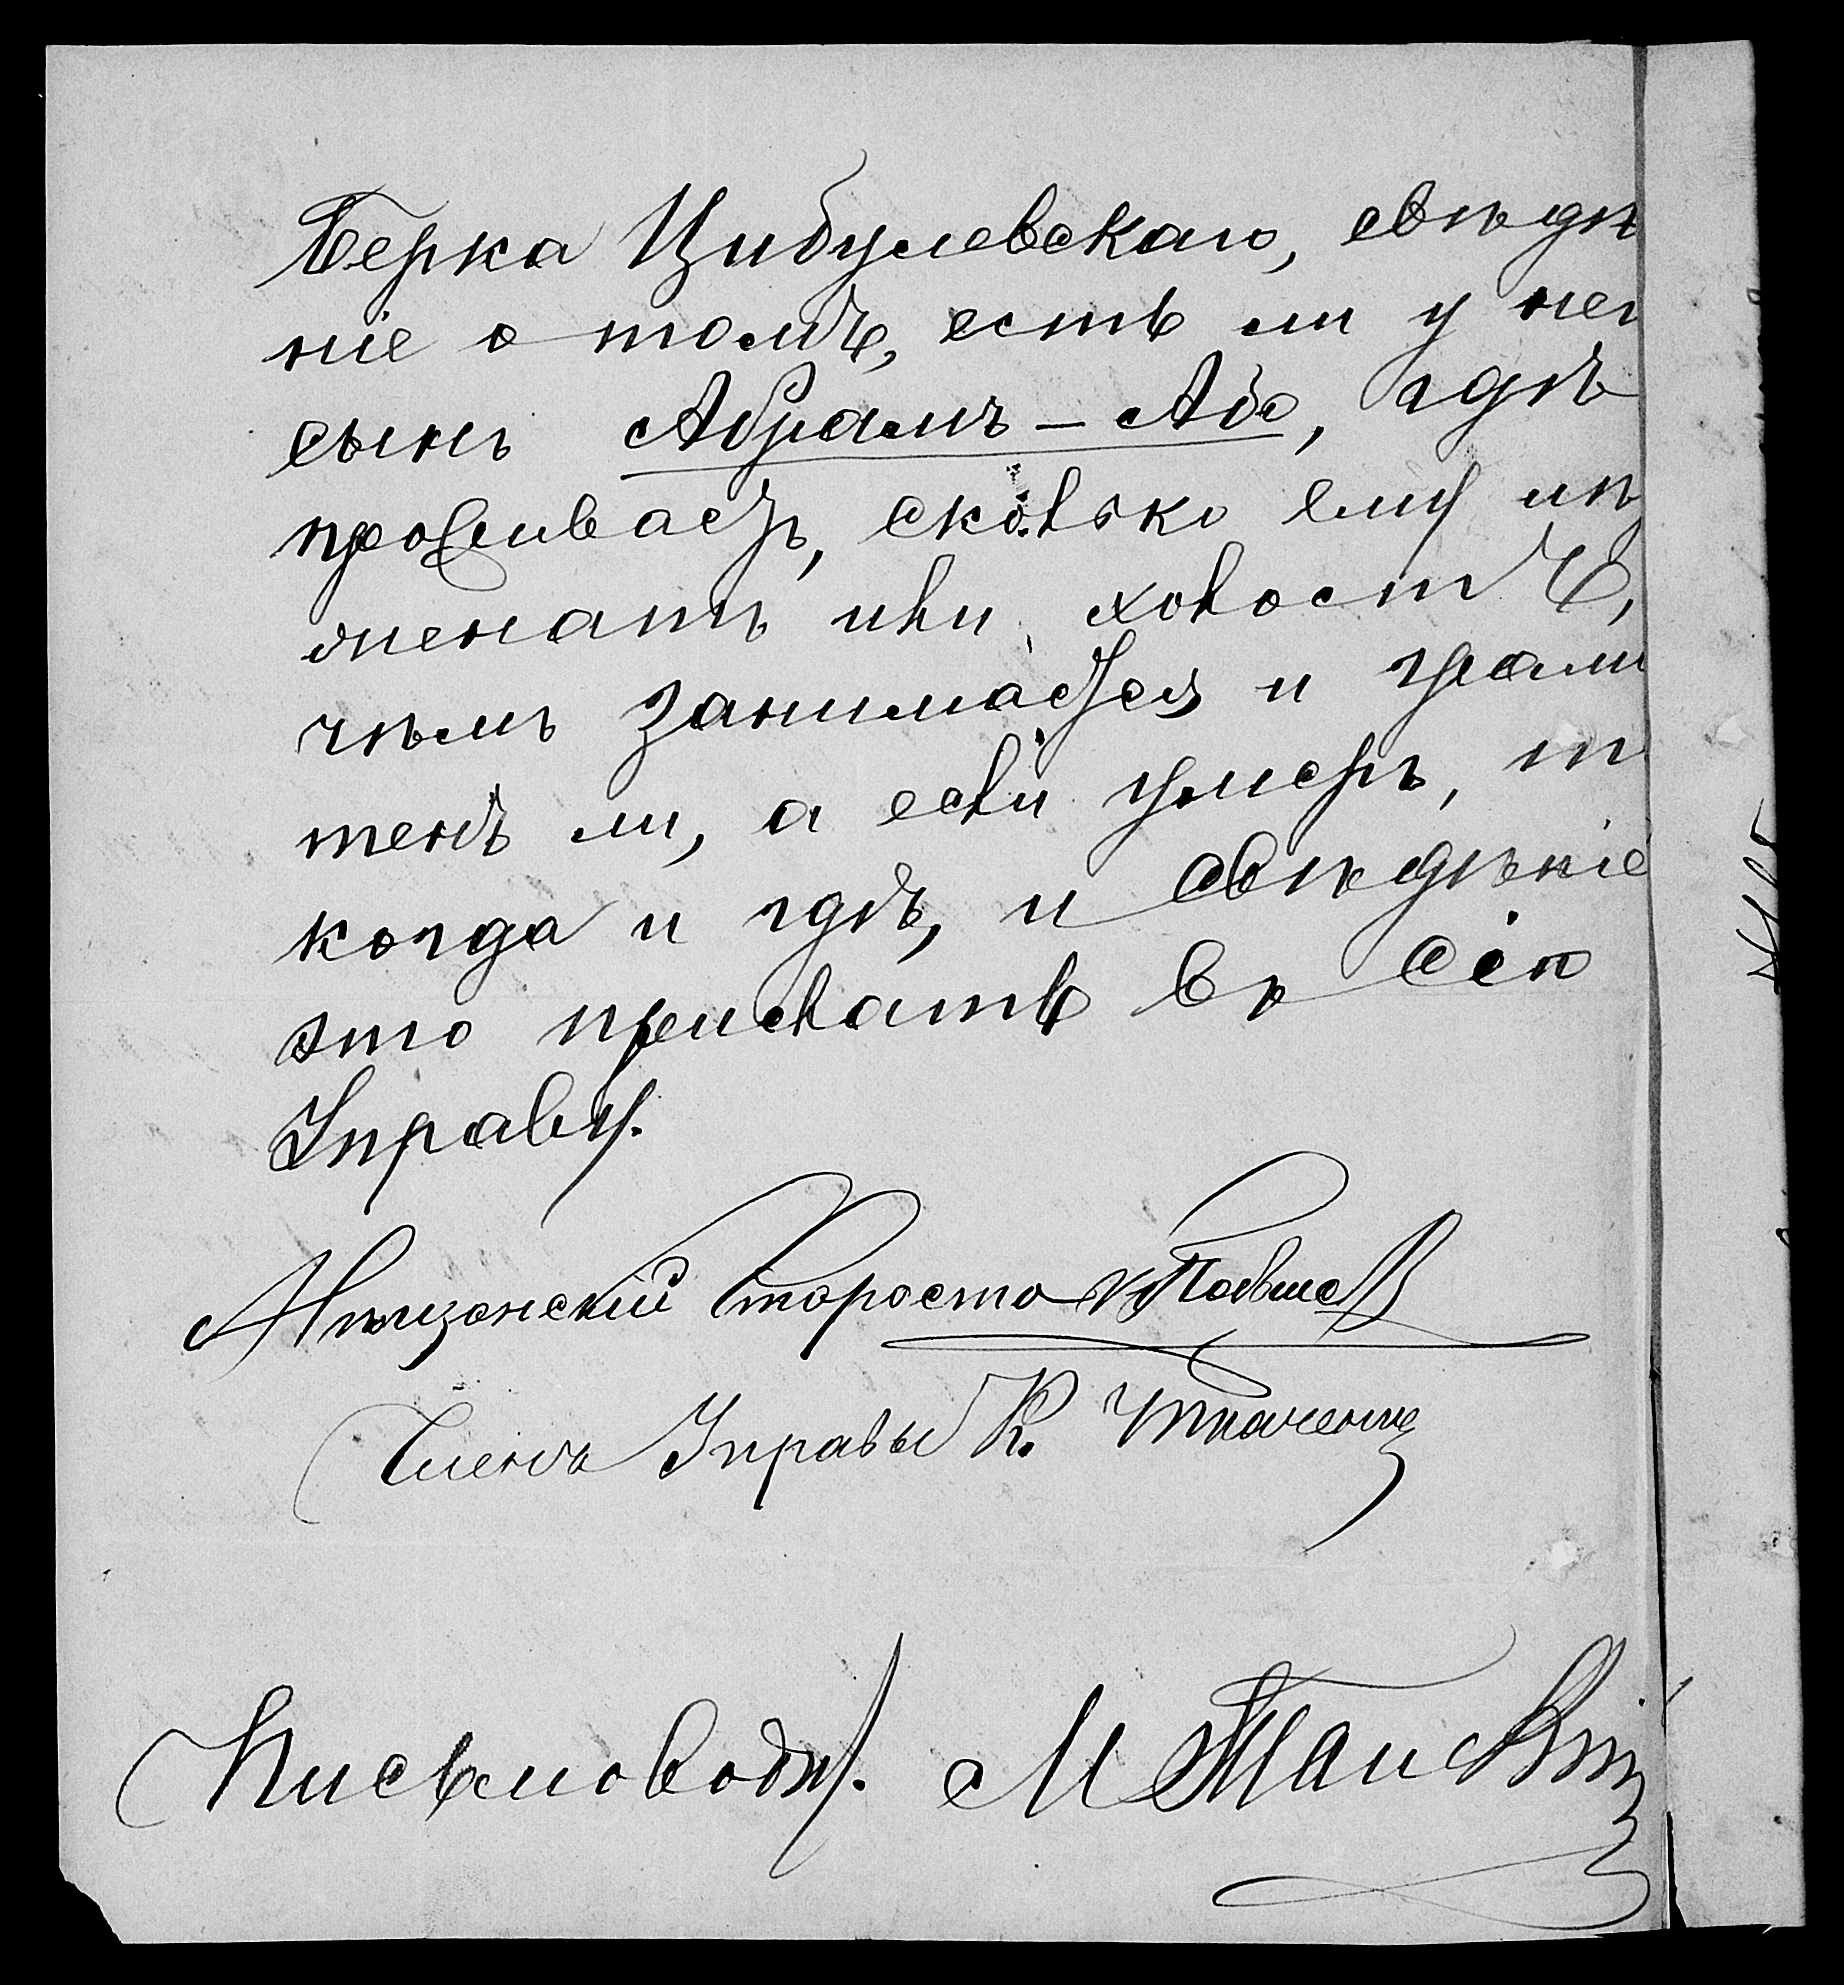 Берка Цибулевскаго, свѣдѣ
ніе о томъ, есть ли у не
сынъ Абрамъ-Аба, гдѣ
проживаетъ, сколько ему лѣ
женатъ или холостъ,
чѣмъ занимается и грам
тенъ ли, а если умеръ, т
когда и гдѣ, и свѣдѣніе
это прислать въ сію
Управу.
Мѣщанскій Староста
Членъ Управы К. Ткаченко
Письмовод. М